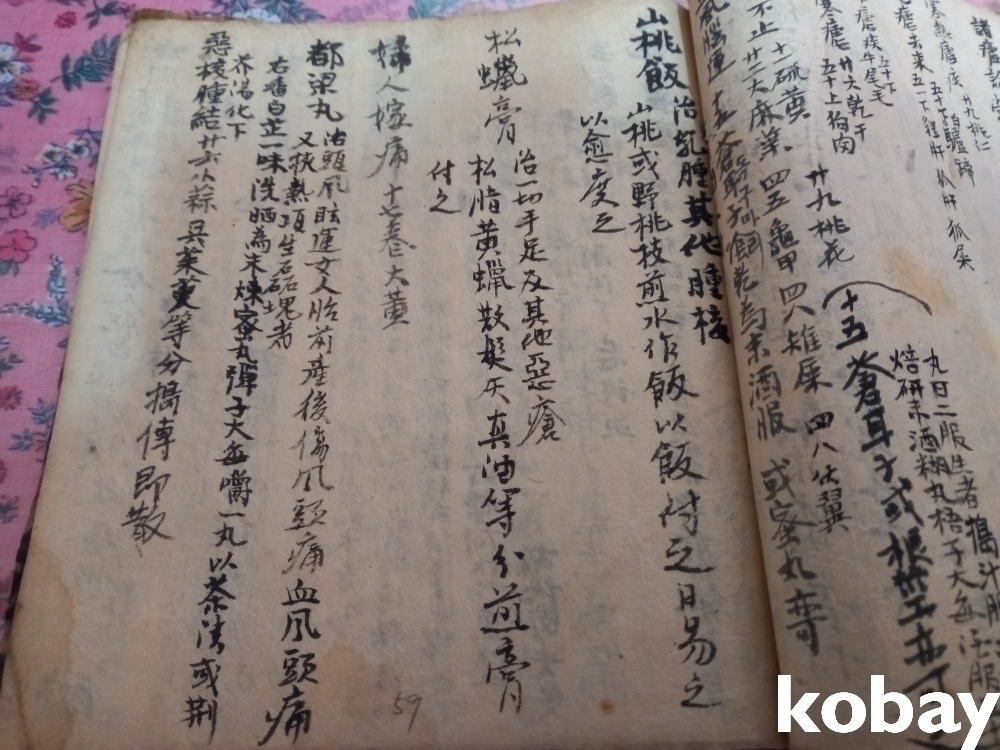 諸瘡
寒熱瘧疾 廿九桃仁
五十驢蹄
瘧去来五一下狸肝 狐屎
五十下
瘧疾牛尾毛
寒瘧 廿六乾干
五十上狗肉
廿九桃花
十五蒼耳子或根莖亦可
丸日二服生者搗汁服
焙研末酒糊丸梧子大每酒服
不止 十一硫黄
廿二大麻葉 四五龜甲 四八雄屎 四八伏翼
十五蒼耳子 乾為末酒服 或蜜丸亦可
山桃飯 治乳腫其他腫核
山桃或野桃枝煎水作飯以飯付之日易之
以愈度之
松蠟膏 治一切手足及其他惡瘡
松脂黄蠟散髮灰真油等分煎膏
付之
婦人嫁痛十七卷大黄
都梁丸 治頭風眩運女人胎前産後傷風頭痛血風頭痛
又挾熱項生磊塊者
右香白芷一味洗晒為末煉蜜丸彈子大每嚼一丸以茶清或荆
芥湯化下
惡核腫結廿六小蒜吳茱萸等分搗傅即散
59
kobay